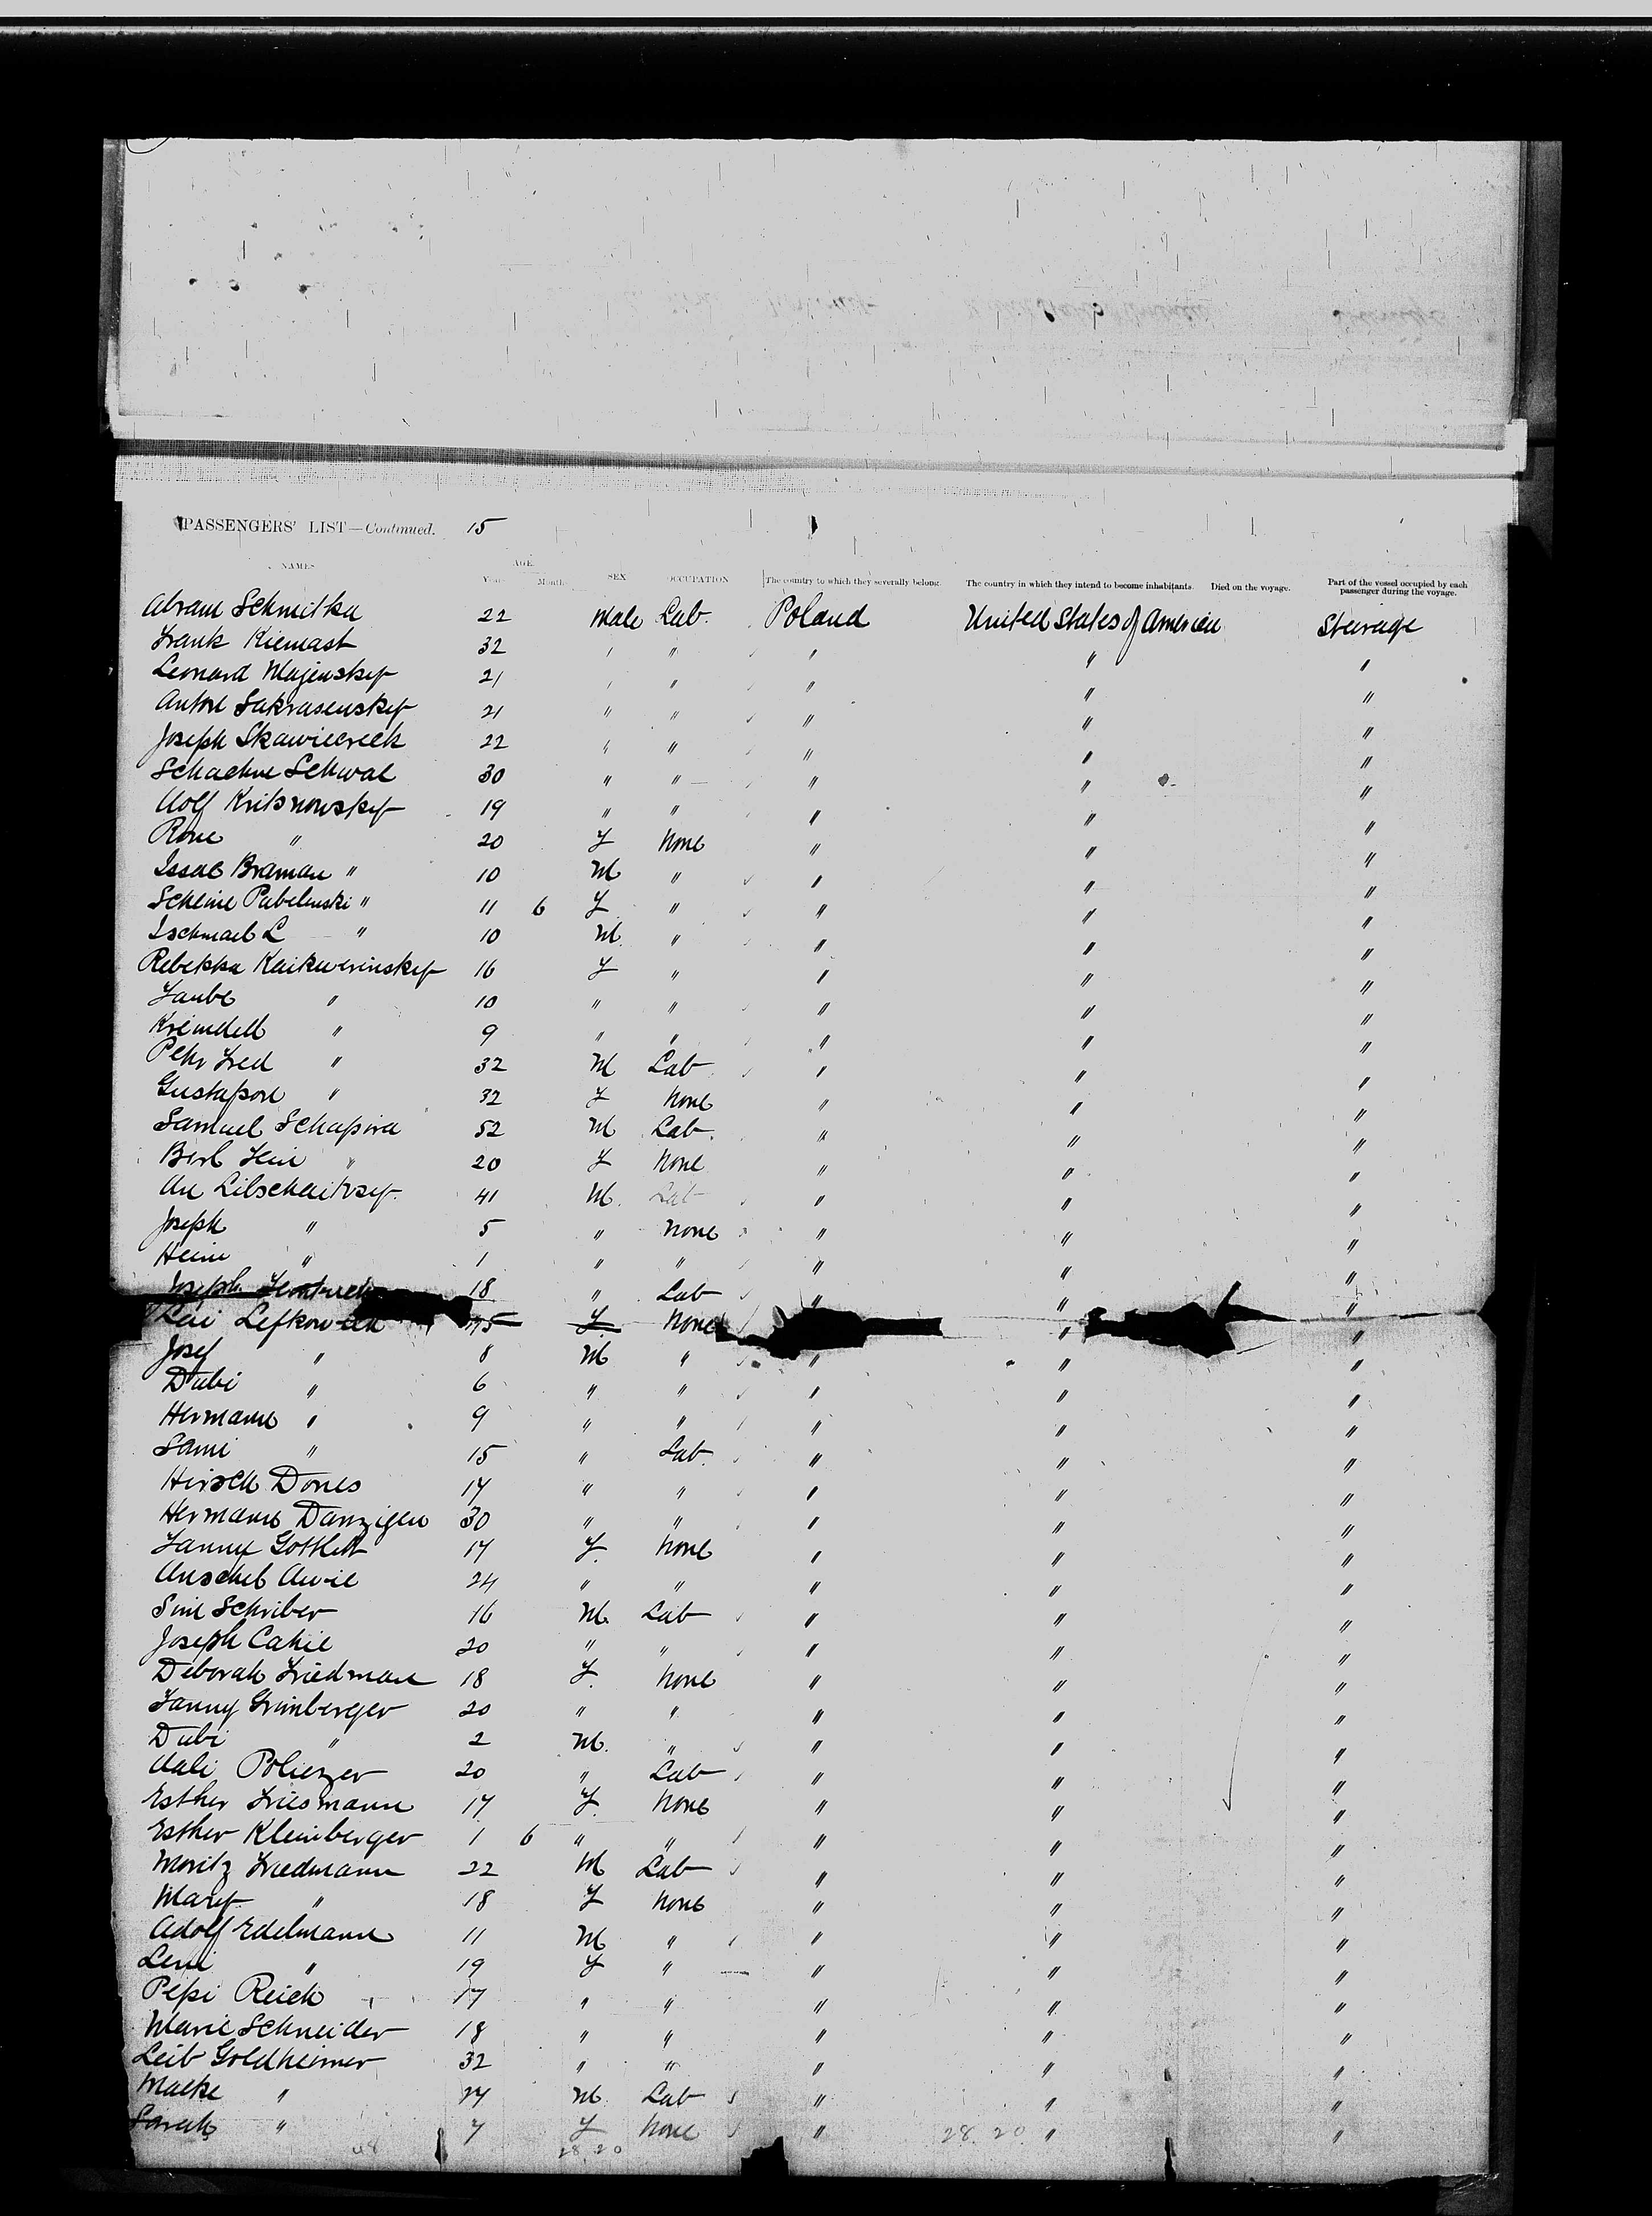 PASSENGERS' LIST—Continued. 15
NAMES AGE Years Months SEX OCCUPATION The country to which they severally belong. The country in which they intend to become inhabitants. Died on the voyage. Part of the vessel occupied by each passenger during the voyage.
Abram Schmitka 22 Male Lab. Poland United States of America Steerage
Frank Kiemast 32 " " " " "
Leonard Majenskey 21 " " " " "
Anton Sakrasenskey 21 " " " " "
Joseph 22 " " " " "
Schachne Schwal 30 " " " " "
Adolf Kritsnowskey 19 " " " " "
" 20 F None " " "
Issac Braman " 10 M " " " "
Scheine Pabelenski " 11 6 F " " " "
Ischmael L " 10 M. " " " "
Rebekka 16 F " " " "
Taube " 10 " " " " "
Kreindell " 9 " " " " "
Fred " 32 M Lab " " "
" 32 F None " " "
Samuel Schapira 52 M Lab. " " "
" 20 F None " " "
41 M. Lab " " "
Joseph " 5 " None " " "
" 1 " " " " "
Joseph 18 " Lab " " "
F None "
Josef " 8 M " " " "
Dubi " 6 " " " " "
Hermann " 9 " " " " "
Sami " 15 " Lab. " " "
Hirsch Dones 17 " " " " "
Hermann Danziger 30 " " " " "
Fanny 17 F. None " " "
Anschel 24 " " " " "
Simi Schriber 16 M. Lab " " "
Joseph 20 " " " " "
Deborah Friedman 18 F. None " " "
Fanny Grunberger 20 " " " " "
Dubi " 2 M. " " " "
20 " Lab " " "
Esther Friesmann 17 F. None " " "
Esther Kleinberger 1 6 " " " " "
Moritz Friedmann 22 M Lab " " "
Mary " 18 F None " " "
Adolf Edelmann 11 M " " " "
Leni " 19 F " " " "
Pepi Reich 17 " " " " "
Marie Schneider 18 " " " " "
Leib Goldheimer 32 " " " " "
" M. Lab " " "
Sarah " 7 F None " " "
48 28 20 28 20